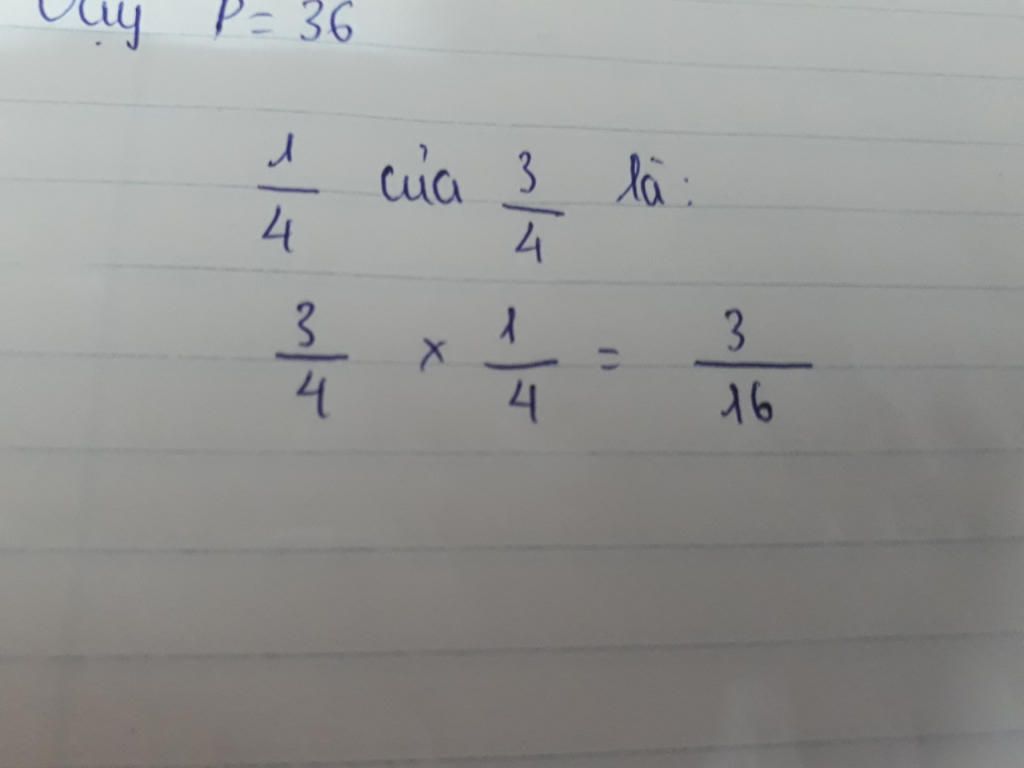 Vậy P = 36
1/4 của 3/4 là:
3/4 × 1/4 = 3/16